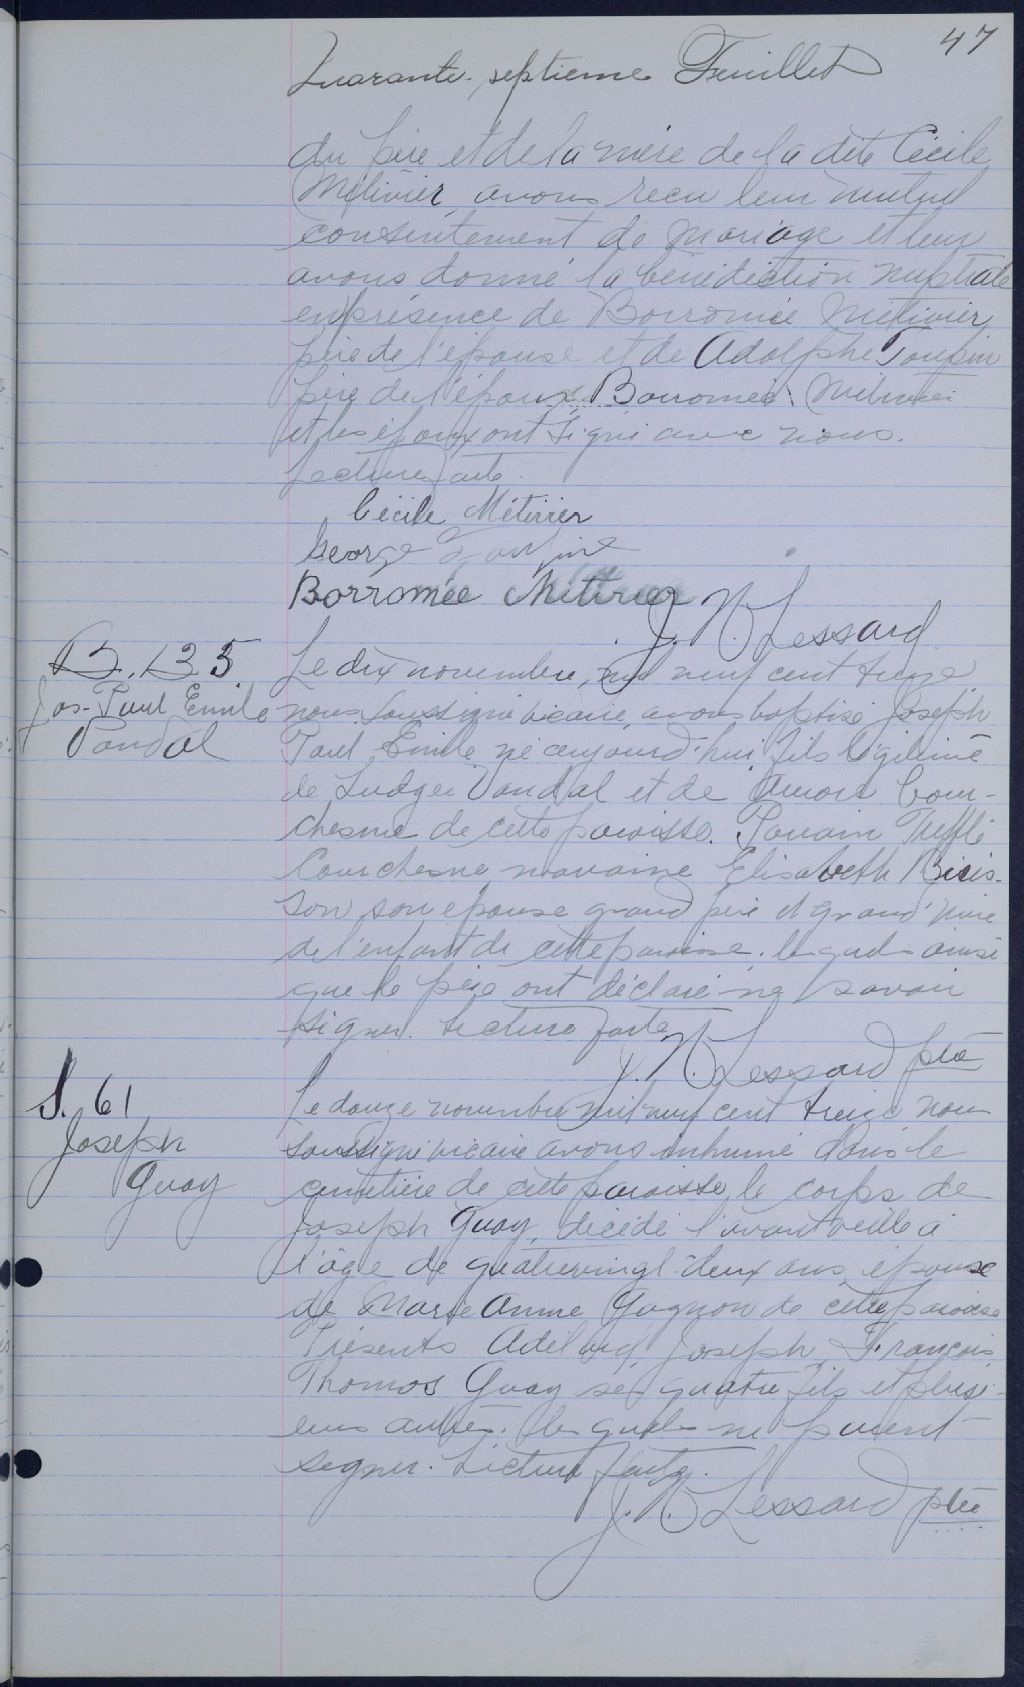 47
Quarante-septieme Feuillet
du père et de la mère de la dite Cécile
Métivier avons recu leur mutuel
consentement de mariage et leur
avons donné la bénédiction nuptiale
en présence de Borromée Métivier
père de l'épouse et de Adolphe Toupin
père de l'époux. Borromée Métivier
et les époux ont signé avec nous.
Lecture faite.
Cécile Métivier
George
Borromée Métivier
J. N. Lessard
B. 135
Jos-Paul Emile
Vandal
Le dix novembre, mil neuf cent treize
nous soussigné vicaire avons baptisé Joseph
Paul Emile né aujourd'hui fils légitime
de Ludger Vandal et de Aurore Cour-
chesne de cette paroisse. Parrain Trefflé
Courchesne marraine Elisabeth Bris-
son son epouse grand père et grand'mère
de l'enfant de cette paroisse. lesquels ainsi
que le père ont déclaré ne savoir
signer. Lecture faite
J. N. Lessard ptre
S. 61
Joseph
Guay
Le douze novembre mil neuf cent treize nous
soussigné vicaire avons inhumé dans le
cimetière de cette paroisse, le corps de
Joseph Guay, décédé l'avant veille à
l'âge de quatrevingt-deux ans, épouse
de Marie Anne Gagnon de cette paroisse
Présents Adélard, Joseph, François,
Thomas Guay ses quatre fils et plusi-
eurs autres. lesquels ne purent
signer. Lecture faite.
J. N. Lessard ptre